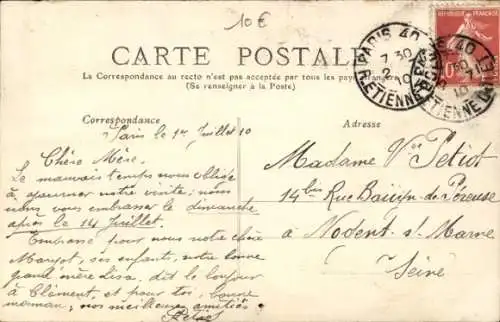 10€
CARTE POSTALE
La Correspondance au recto n'est pas acceptée par tous les pays étrangers
(Se renseigner à la Poste)
PARIS 40
7 30
2 - 7
10
R. ETIENNE MARCEL
Correspondance
Adresse
Paris le 1er Juillet 10
Chère Mère.
Le mauvais temps nous oblige
à ajourner notre visite; nous
irons vous embrasser le dimanche
après le 14 Juillet.
Embrasse pour nous notre chère
Margot, ses enfants, notre bonne
grand mère Lisa, dit le bonjour
à Clément, et pour toi, bonne
maman, nos meilleures amitiés
Petiot
Madame Vve Petiot
14bis Rue Baüyn-de-Péreuse
à Nodent s/ Marne
Seine